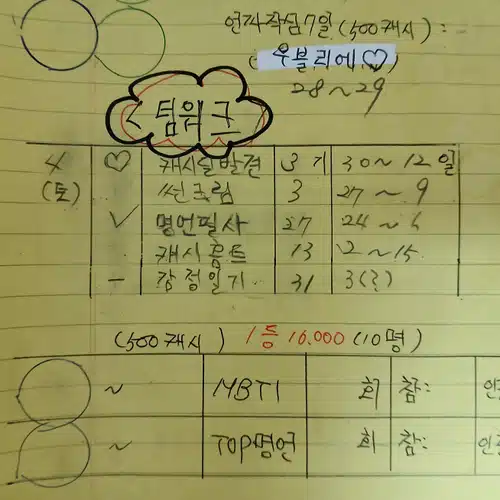 연자작심7일 (500캐시) :
(우블리에♡)
28~29
<팀워크
4 ♡ 캐시딜발견 3기 30~12일
(토) 썬크림 3 27~9
✓ 명언필사 27 24~6
캐시홈트 13 2~15
- 감정일기 31 3(금)
(500캐시) 1등 10,000 (10명)
~ MBTI 회 참: 인
~ TOP명언 회 참: 인